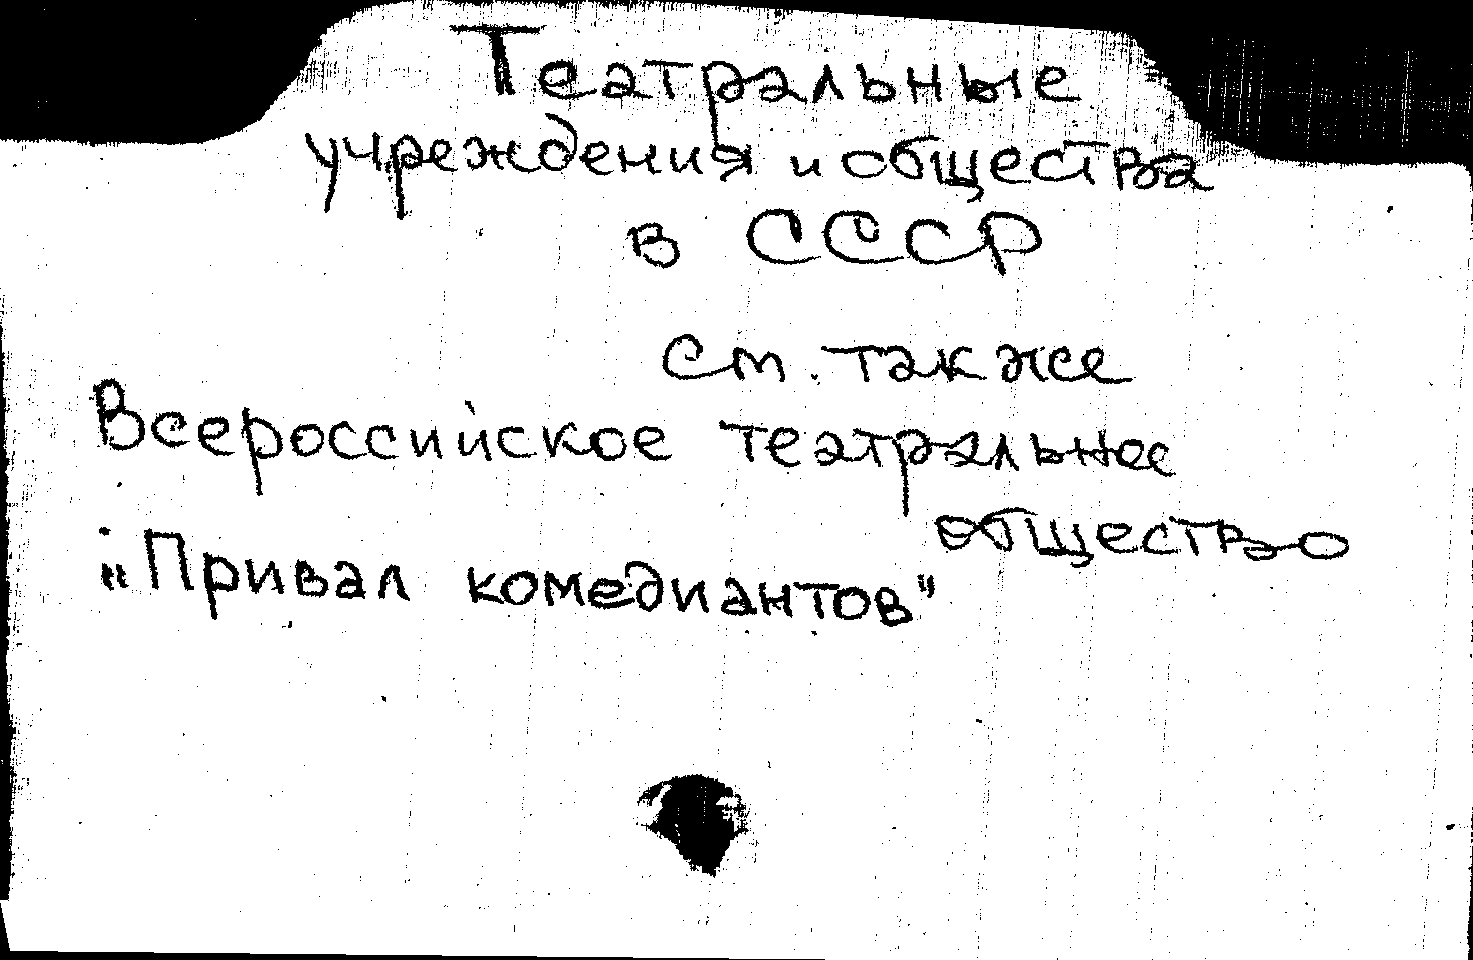 Театральные
учреждения и общества
в СССР
см. также
Всероссийское театральное
общество
"Привал комедиантов"